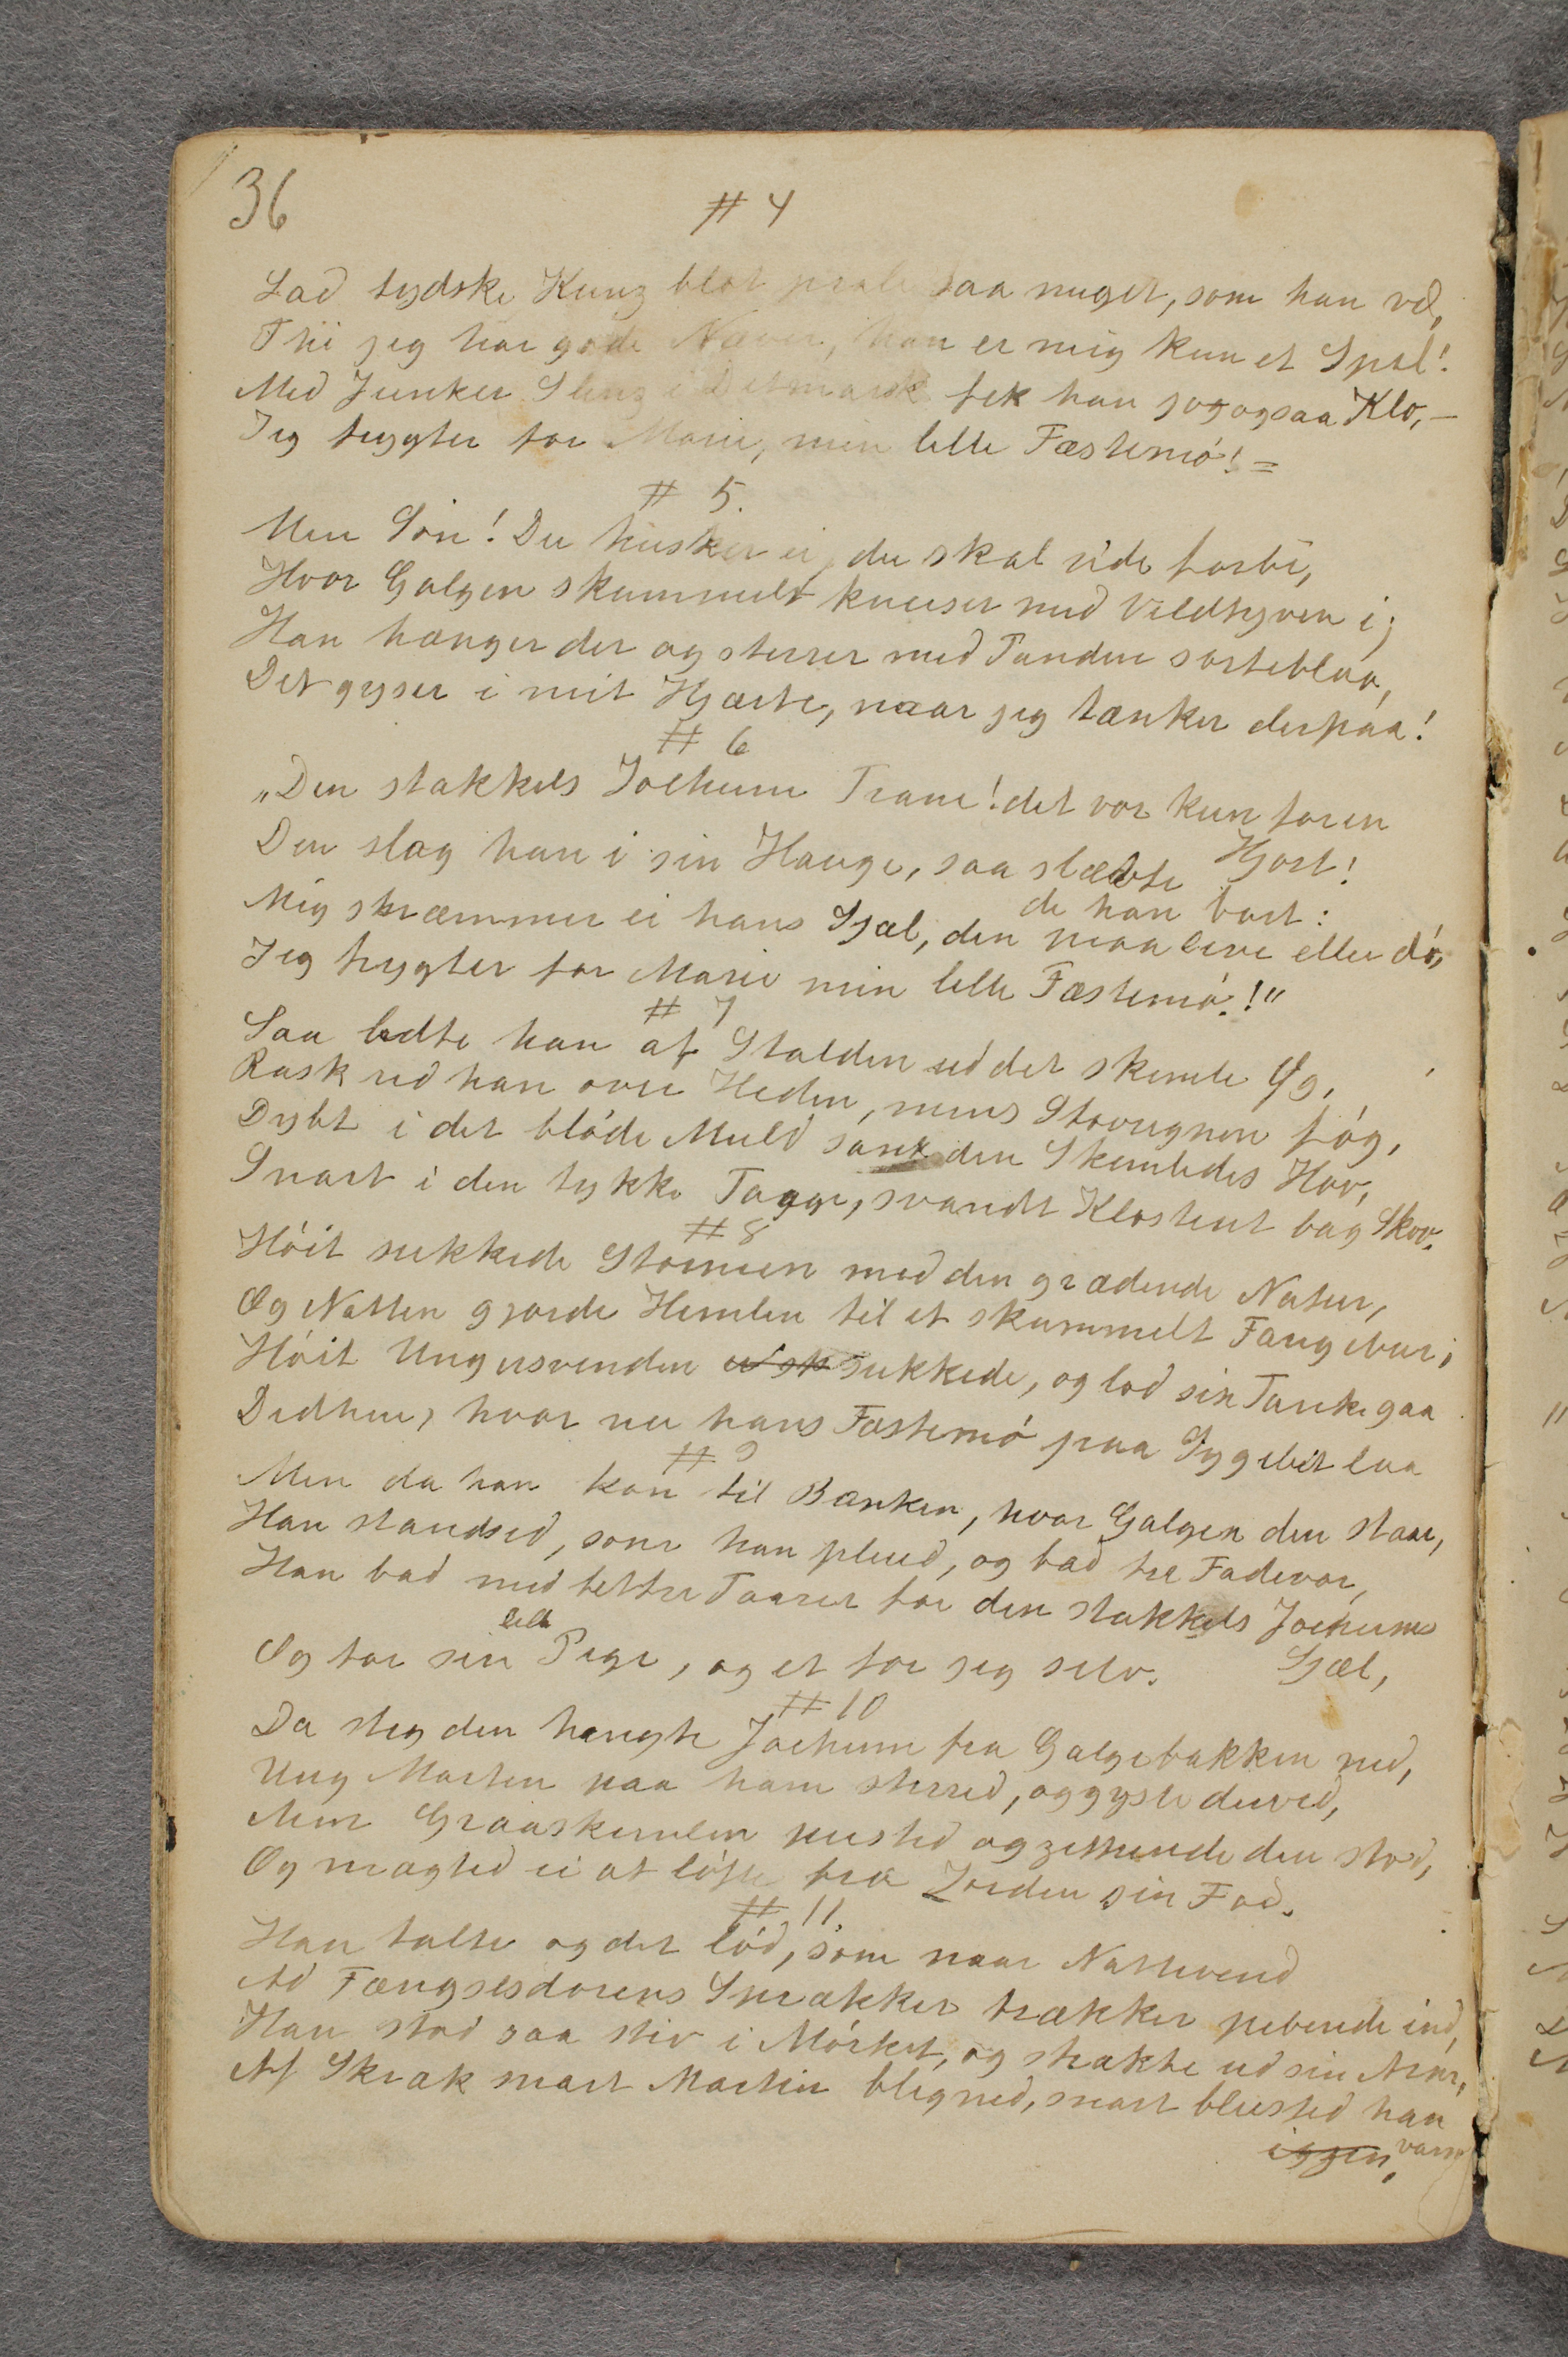 36
# 4
Lad tydske Kunz blot prale saa meget, som han vil,
Thi jeg har gode Næver, han er mig kun et Spil!
Med Junker Slenz i Ditmarsk fik han jo ogsaa Klo, -
Jeg frygter for Marie, min lille Fæstemó! =
# 5.
Min Són! Du husker ei, du skal ride forbi,
Hvor Galgen skummelt kneiser med Vildtyven i;
Han hænger der og stirrer med Panden sorteblaa,
Det gyser i mit Hjærte, naar jeg tænker derpaa!
# 6
„Den stakkels Jochum Trane! det var kun for en
Hjort!
Den slog han i sin Hauge, saa slæbte
de han bort:
Mig skræmmer ei hans Sjæl, den maa leve eller dó,
Jeg frygter for Marie min lille Fæstemó!"
# 7
Saa ledte han af Stalden ud det skimle Óg,
Rask red han over Heden, mens Stovregnen fóg,
Dybt i det blóde Muld sank den Skimledes Hov,
Snart i den tykke Taage, svandt Klostret bag Skov.
# 8
Hóit sukkede Stormen med den grædende Natur,
Og Natten gjorde Himlen til et skummelt Fangebur;
Hóit Ungersvenden sukkede, og lod sin Tanke gaa
Didhen, hvor nu hans Fæstemó paa Sygebit laa
# 9
Men da han kom til Banken, hvor Galgen den staar,
Han standsed, som han pleied, og bad tre Fadevor,
Han bad med tætter Taarer for den stakkels Jochums
Sjæl,
Og for sin lille Pige, og et for sig selv.
# 10
Da steg den hængte Jochum fra Galgebakken ned,
Ung Morten paa ham stirred, og gyste derved,
Men Graaskimlen pusted og zittrende den stod,
Og mægted ei at lófte fra Jorden sin Fod.
# 11.
Han talte og det lód, som naar Nattevend
Ad Fængselsdorens Sprækker trækker pibende ind,
Han stod saa stiv i Mórket, og strakte ud sin Arm,
Af Skræk snart Mortin blegned, snart blusted han
igjen, varm